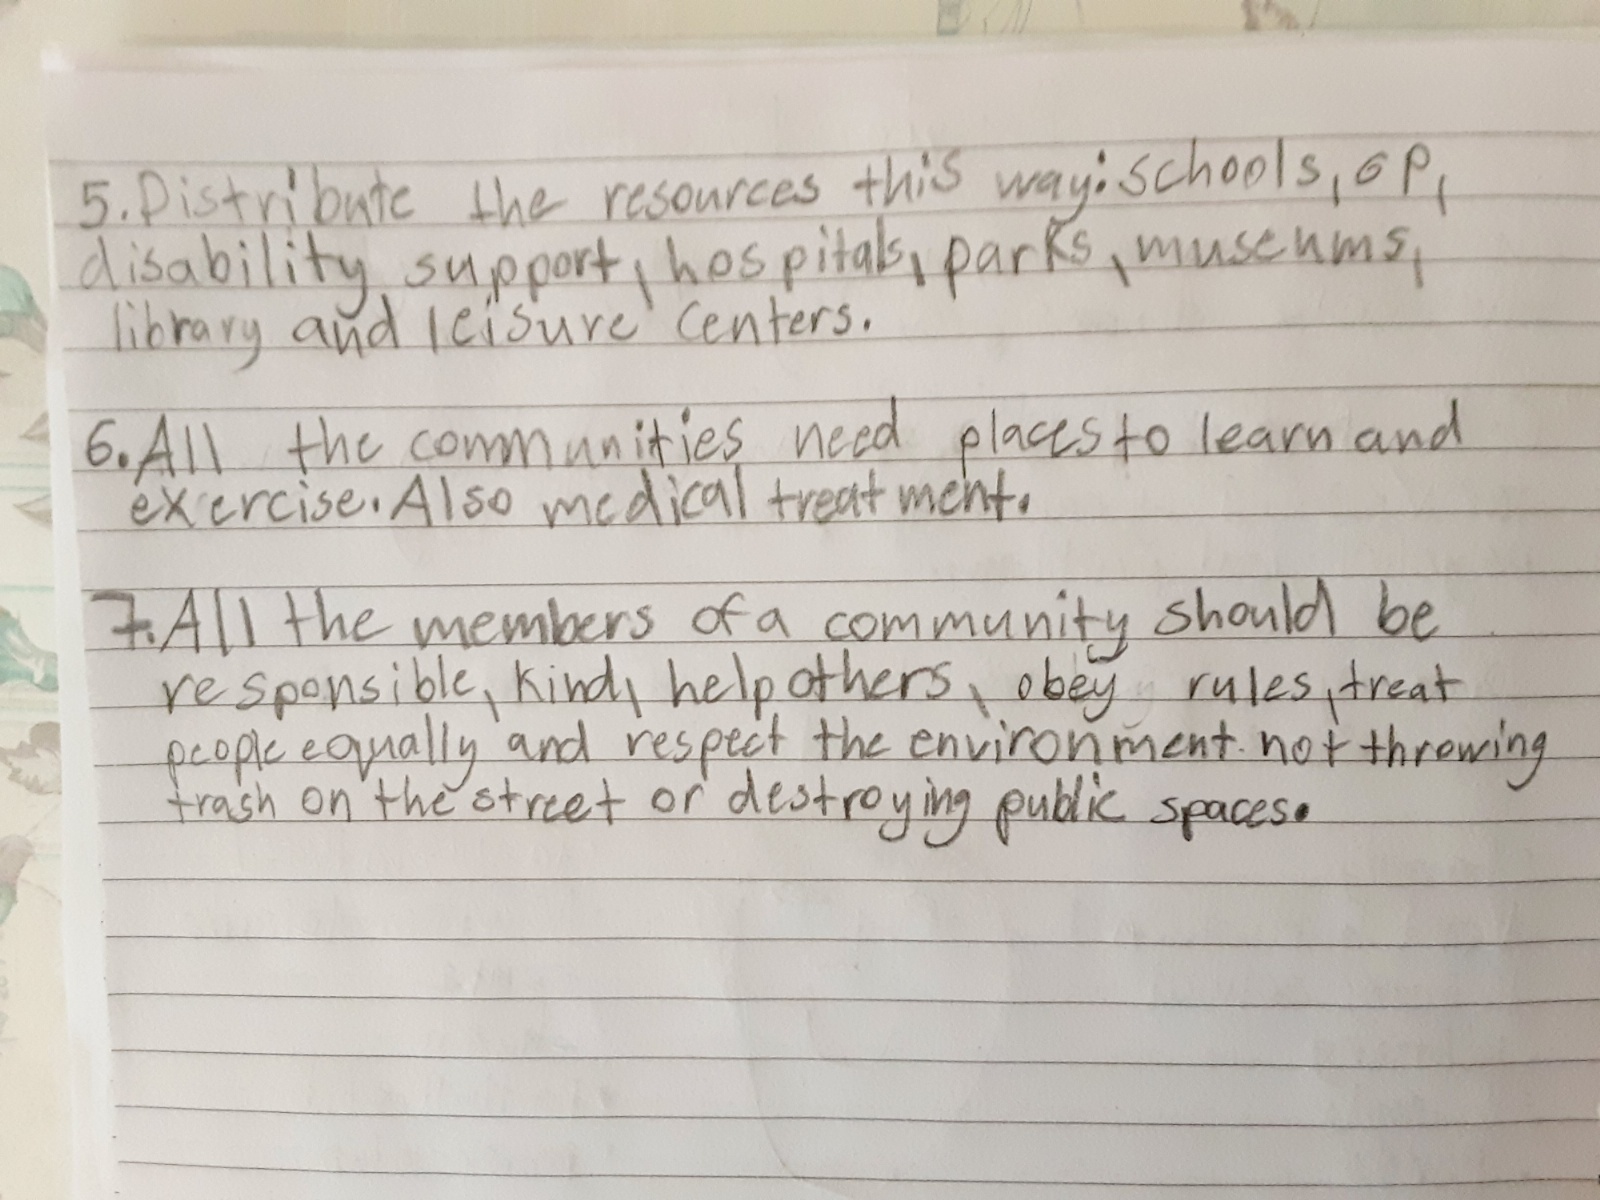 5. Distribute the resources this way: schools, GP,
disability support, hospitals, parks, museums,
library and leisure centers.
6. All the communities need places to learn and
exercise. Also medical treatment.
7. All the members of a community should be
responsible, kind, help others, obey rules, treat
people equally and respect the environment. not throwing
trash on the street or destroying public spaces.